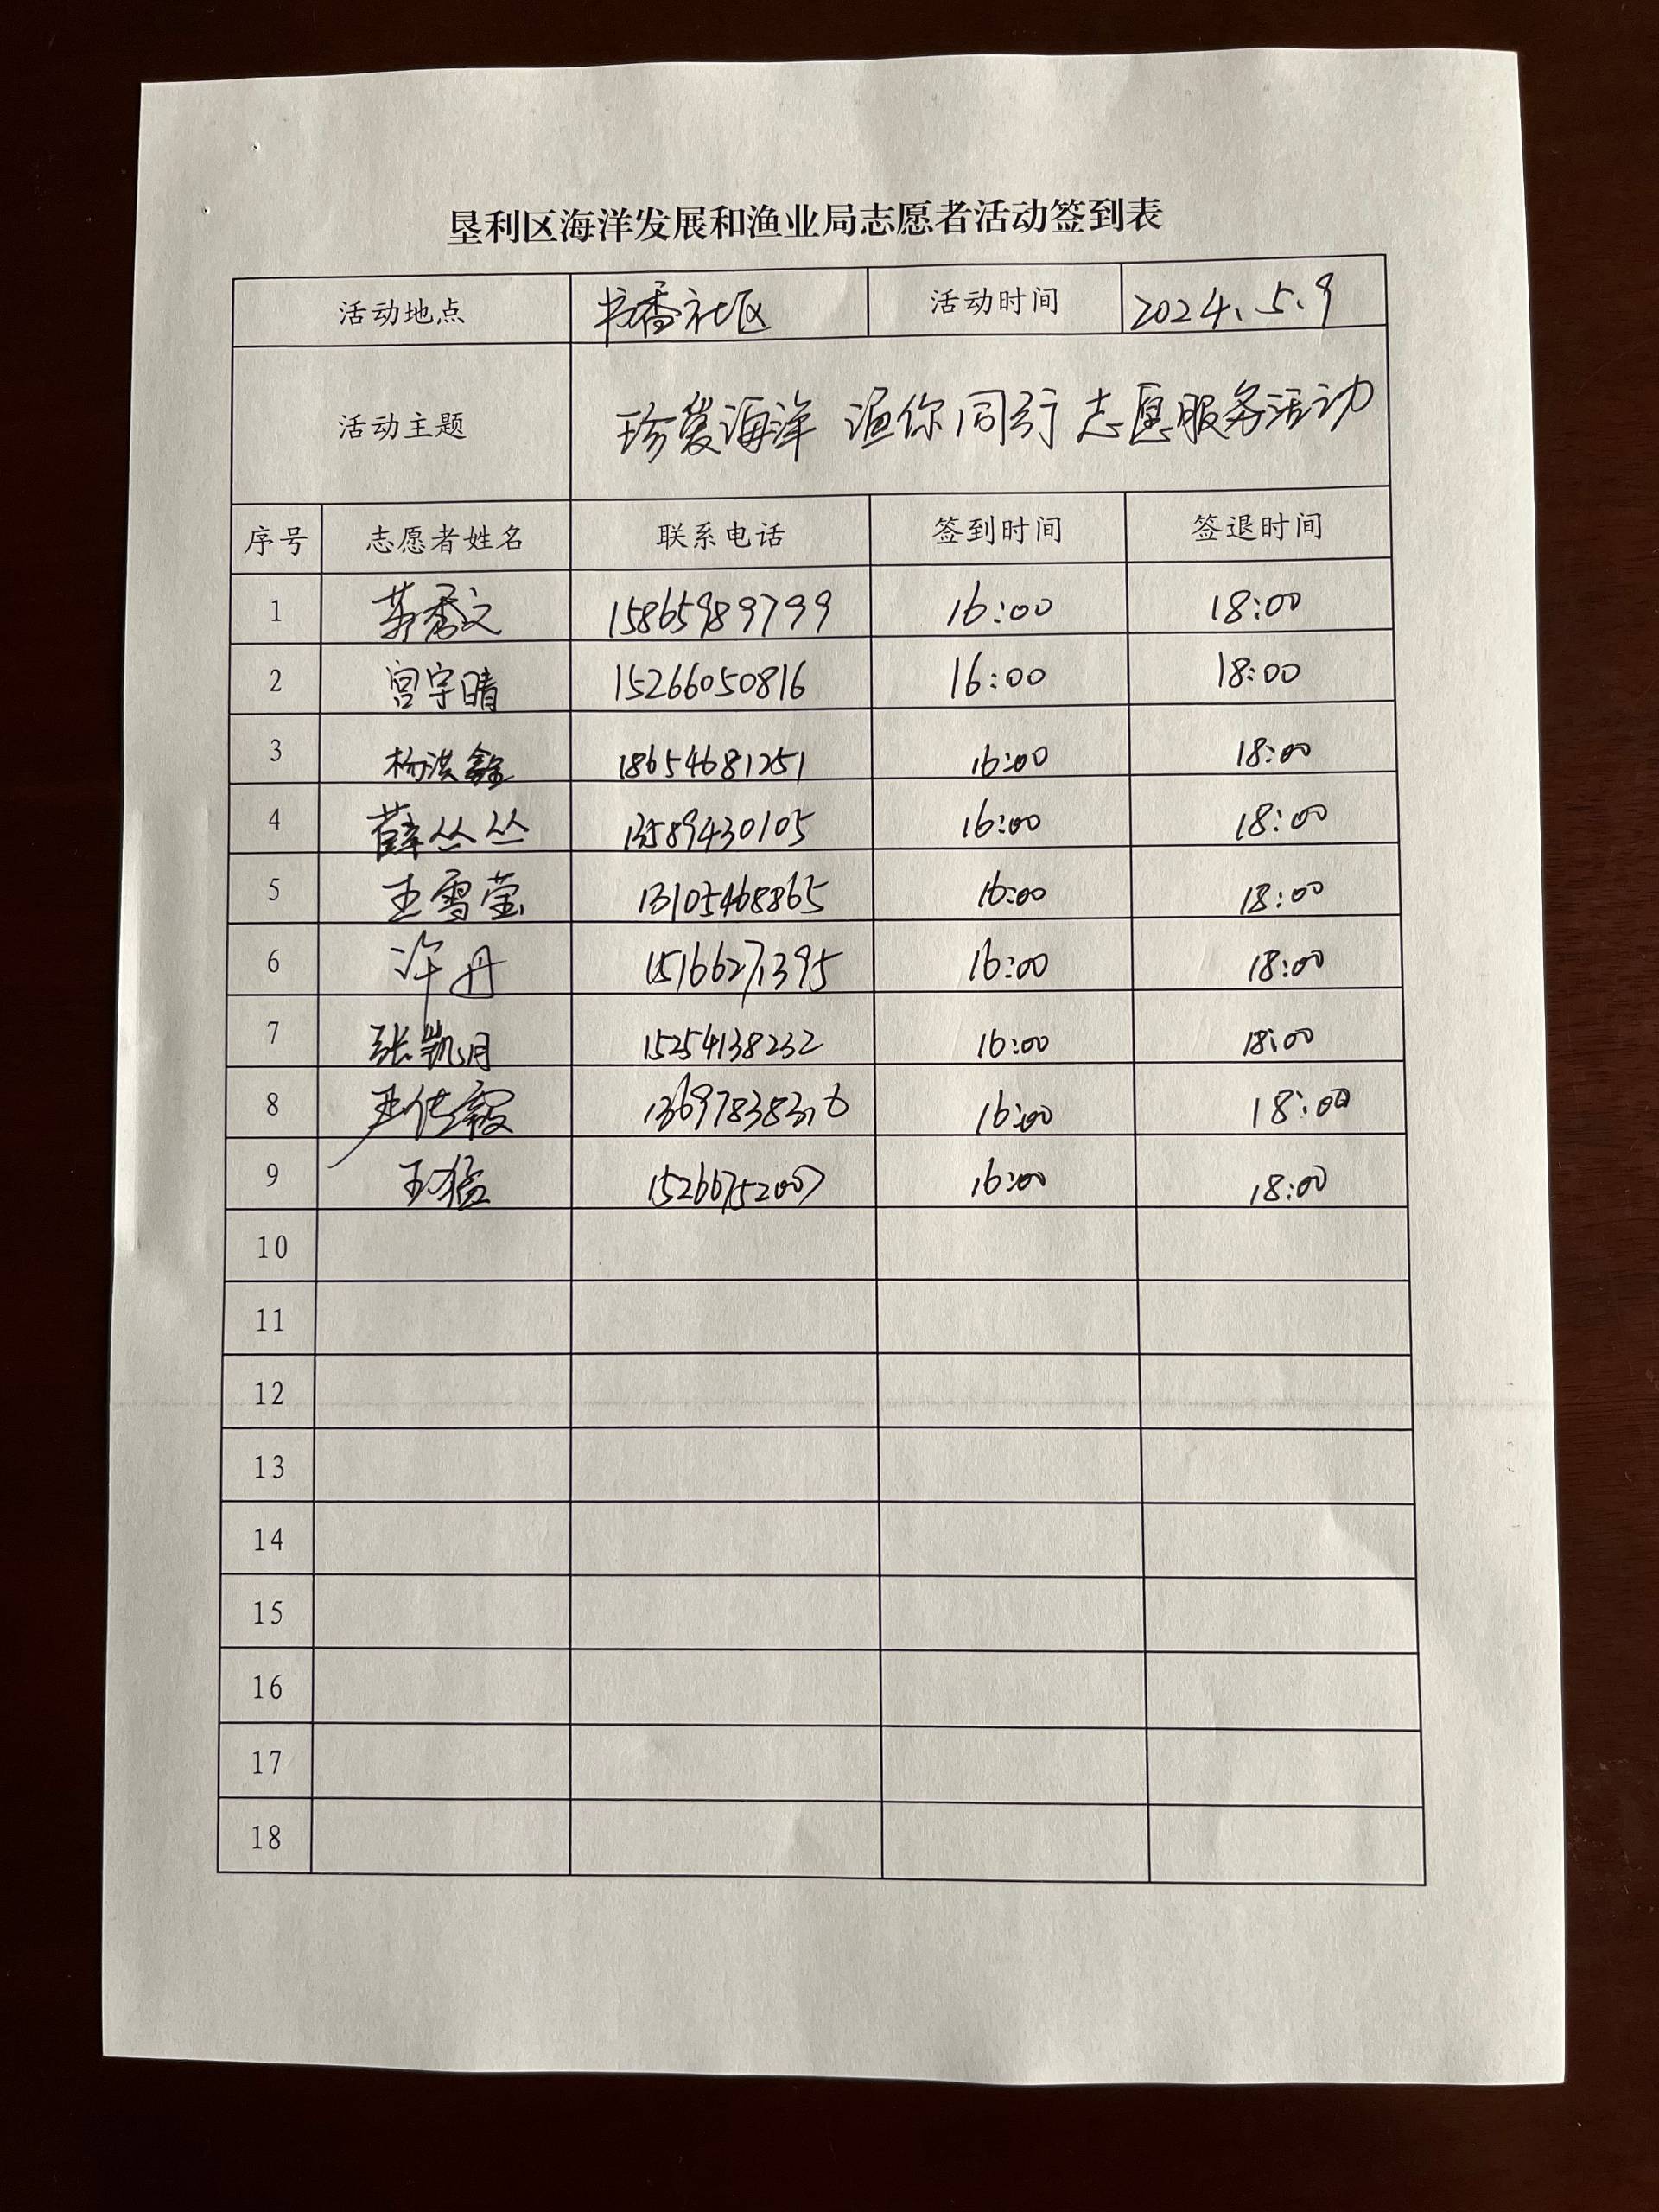 垦利区海洋发展和渔业局志愿者活动签到表
活动地点 书香社区 活动时间 2024.5.9
活动主题 珍爱海洋 渔你同行 志愿服务活动
序号 志愿者姓名 联系电话 签到时间 签退时间
1 秀文 15865989799 16:00 18:00
2 宫宇晴 15266050816 16:00 18:00
3 杨洪鑫 18654681251 16:00 18:00
4 薛丛丛 13589430105 16:00 18:00
5 王雪莹 13105468865 16:00 18:00
6 许丹 15166271395 16:00 18:00
7 张凯月 15254138232 16:00 18:00
8 16:00 18:00
9 王猛 15266752007 16:00 18:00
10
11
12
13
14
15
16
17
18